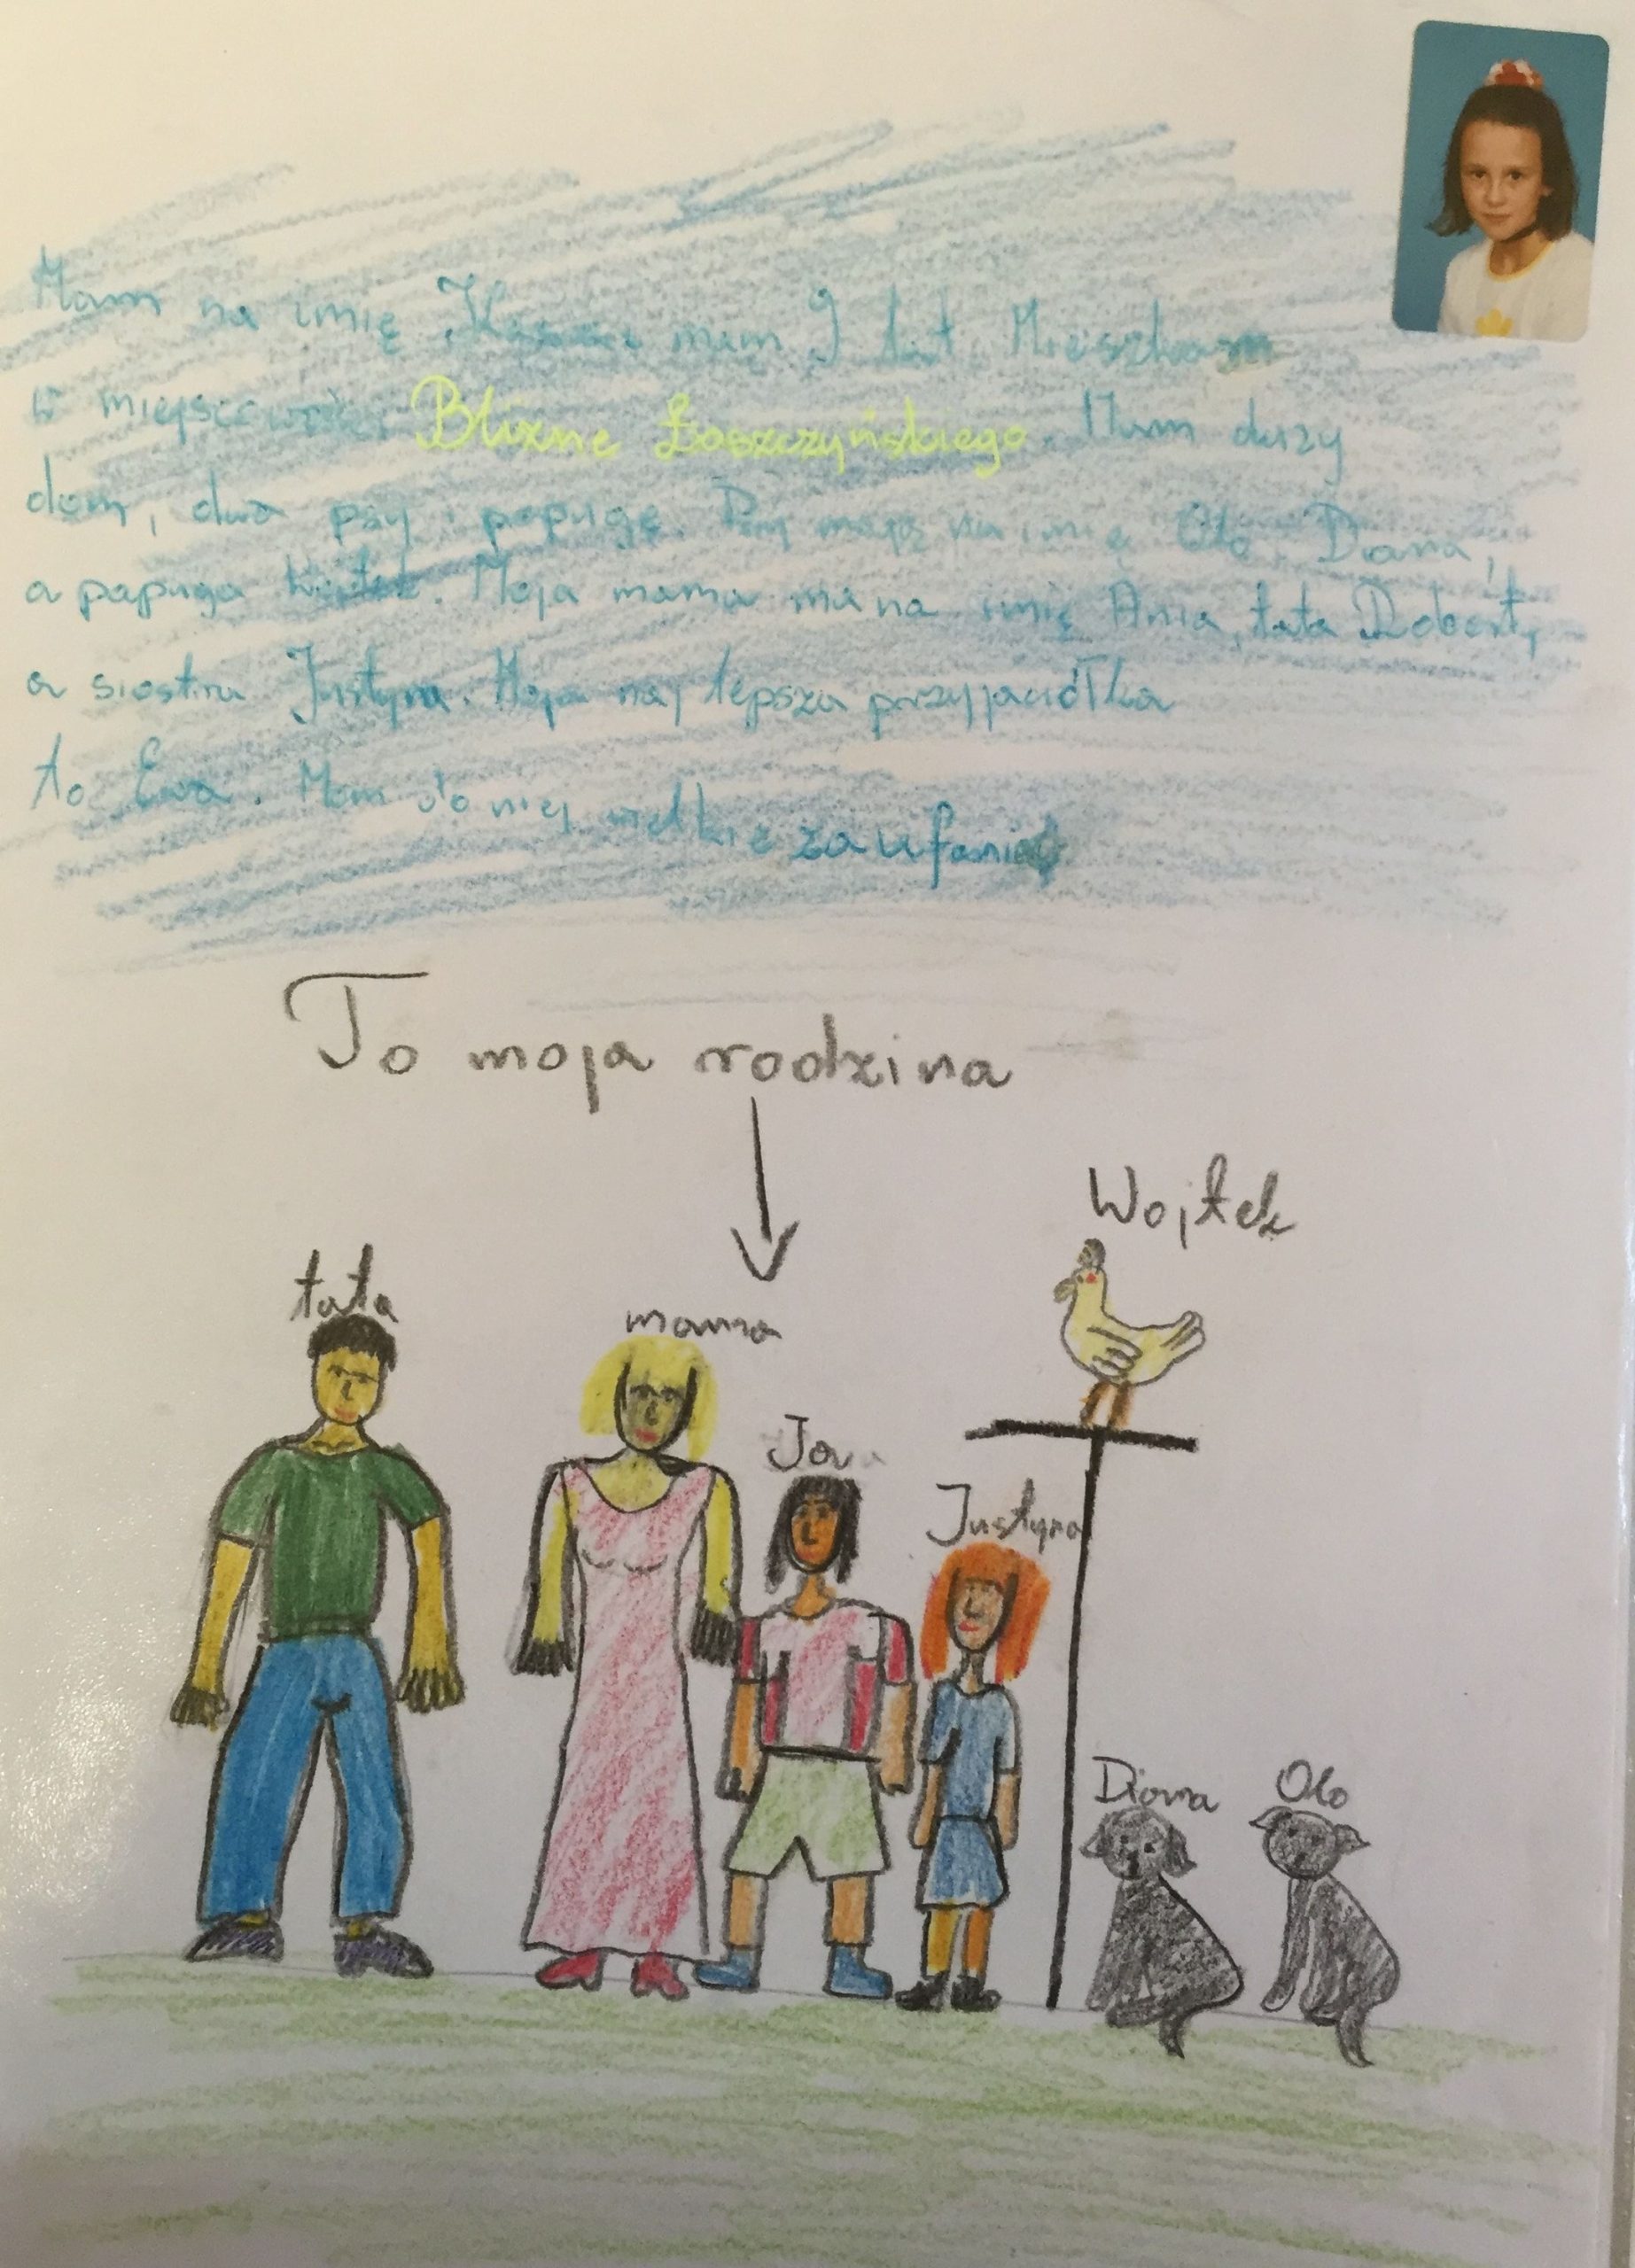 Mam na imię Kasia mam 9 lat. Mieszkam
w miejscowości Blizne Łaszczyńskiego. Mam duży
dom, dwa psy i papugę. Psy mają na imię Olo i Diana,
a papuga Wojtek. Moja mama ma na imię Ania, tata Robert,
a siostra Justyna. Moja naj lepsza przyjaciółka
to Ewa. Mam do niej wielkie zaufanie
To moja rodzina
Wojtek
tata
mama
Ja
Justyna
Diana
Olo